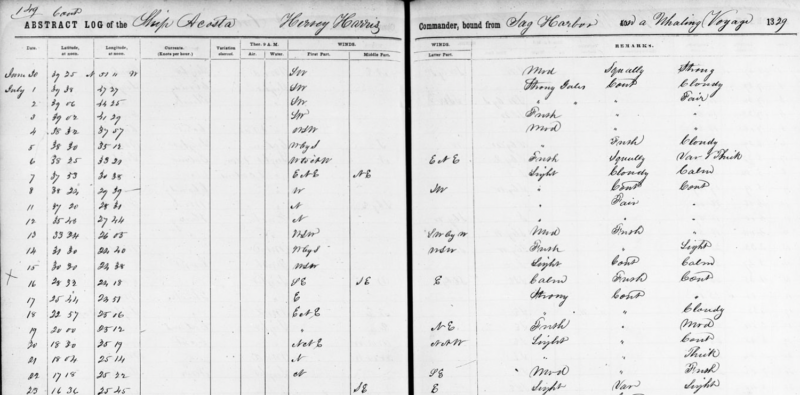 Cont
ABSTRACT LOG of the Ship Acosta Hersey Harris Commander, bound from Sag Harbor on a Whaling Voyage 1329
Date. Latitude, at noon. Longitude, at noon. Currents. (Knots per hour.) Variation observed. Ther. 9 A.M. Air. Water. WINDS. First Part. Middle Part. WINDS. Latter Part. REMARKS.
June 30 39 25 N W SW Mod Squally Strong
July 1 39 38 47 27 SW Strong Gales Cont Cloudy
2 39 06 44 25 SW " " Fair
3 39 02 41 29 SW Fresh " "
4 38 32 37 07 WSW Mod " "
5 38 30 35 12 W by S " Fresh Cloudy
6 38 25 33 20 ENE Fresh Squally Var & Thick
7 37 53 30 38 ENE NE Light Cloudy Calm
8 38 24 29 39 W SW " Cont Cont
11 37 20 28 31 N " Fair "
12 35 48 27 44 N " " "
13 33 24 26 05 WSW SW by W Mod Fresh "
14 31 30 22 40 W by S WSW Fresh " Light
15 30 30 22 38 WSW Light Cont Calm
× 16 28 32 24 18 SE SE E Calm Fresh Cont
17 25 44 24 51 E Strong Cont "
18 22 57 25 06 ENE " " Cloudy
19 20 00 25 12 " NE Fresh " Mod
20 18 30 25 19 NNE NNW Light " Cont
21 18 04 25 14 N " " Thick
22 17 18 25 22 N SE " Mod " Fresh
23 16 36 25 45 SE E Light Var Light